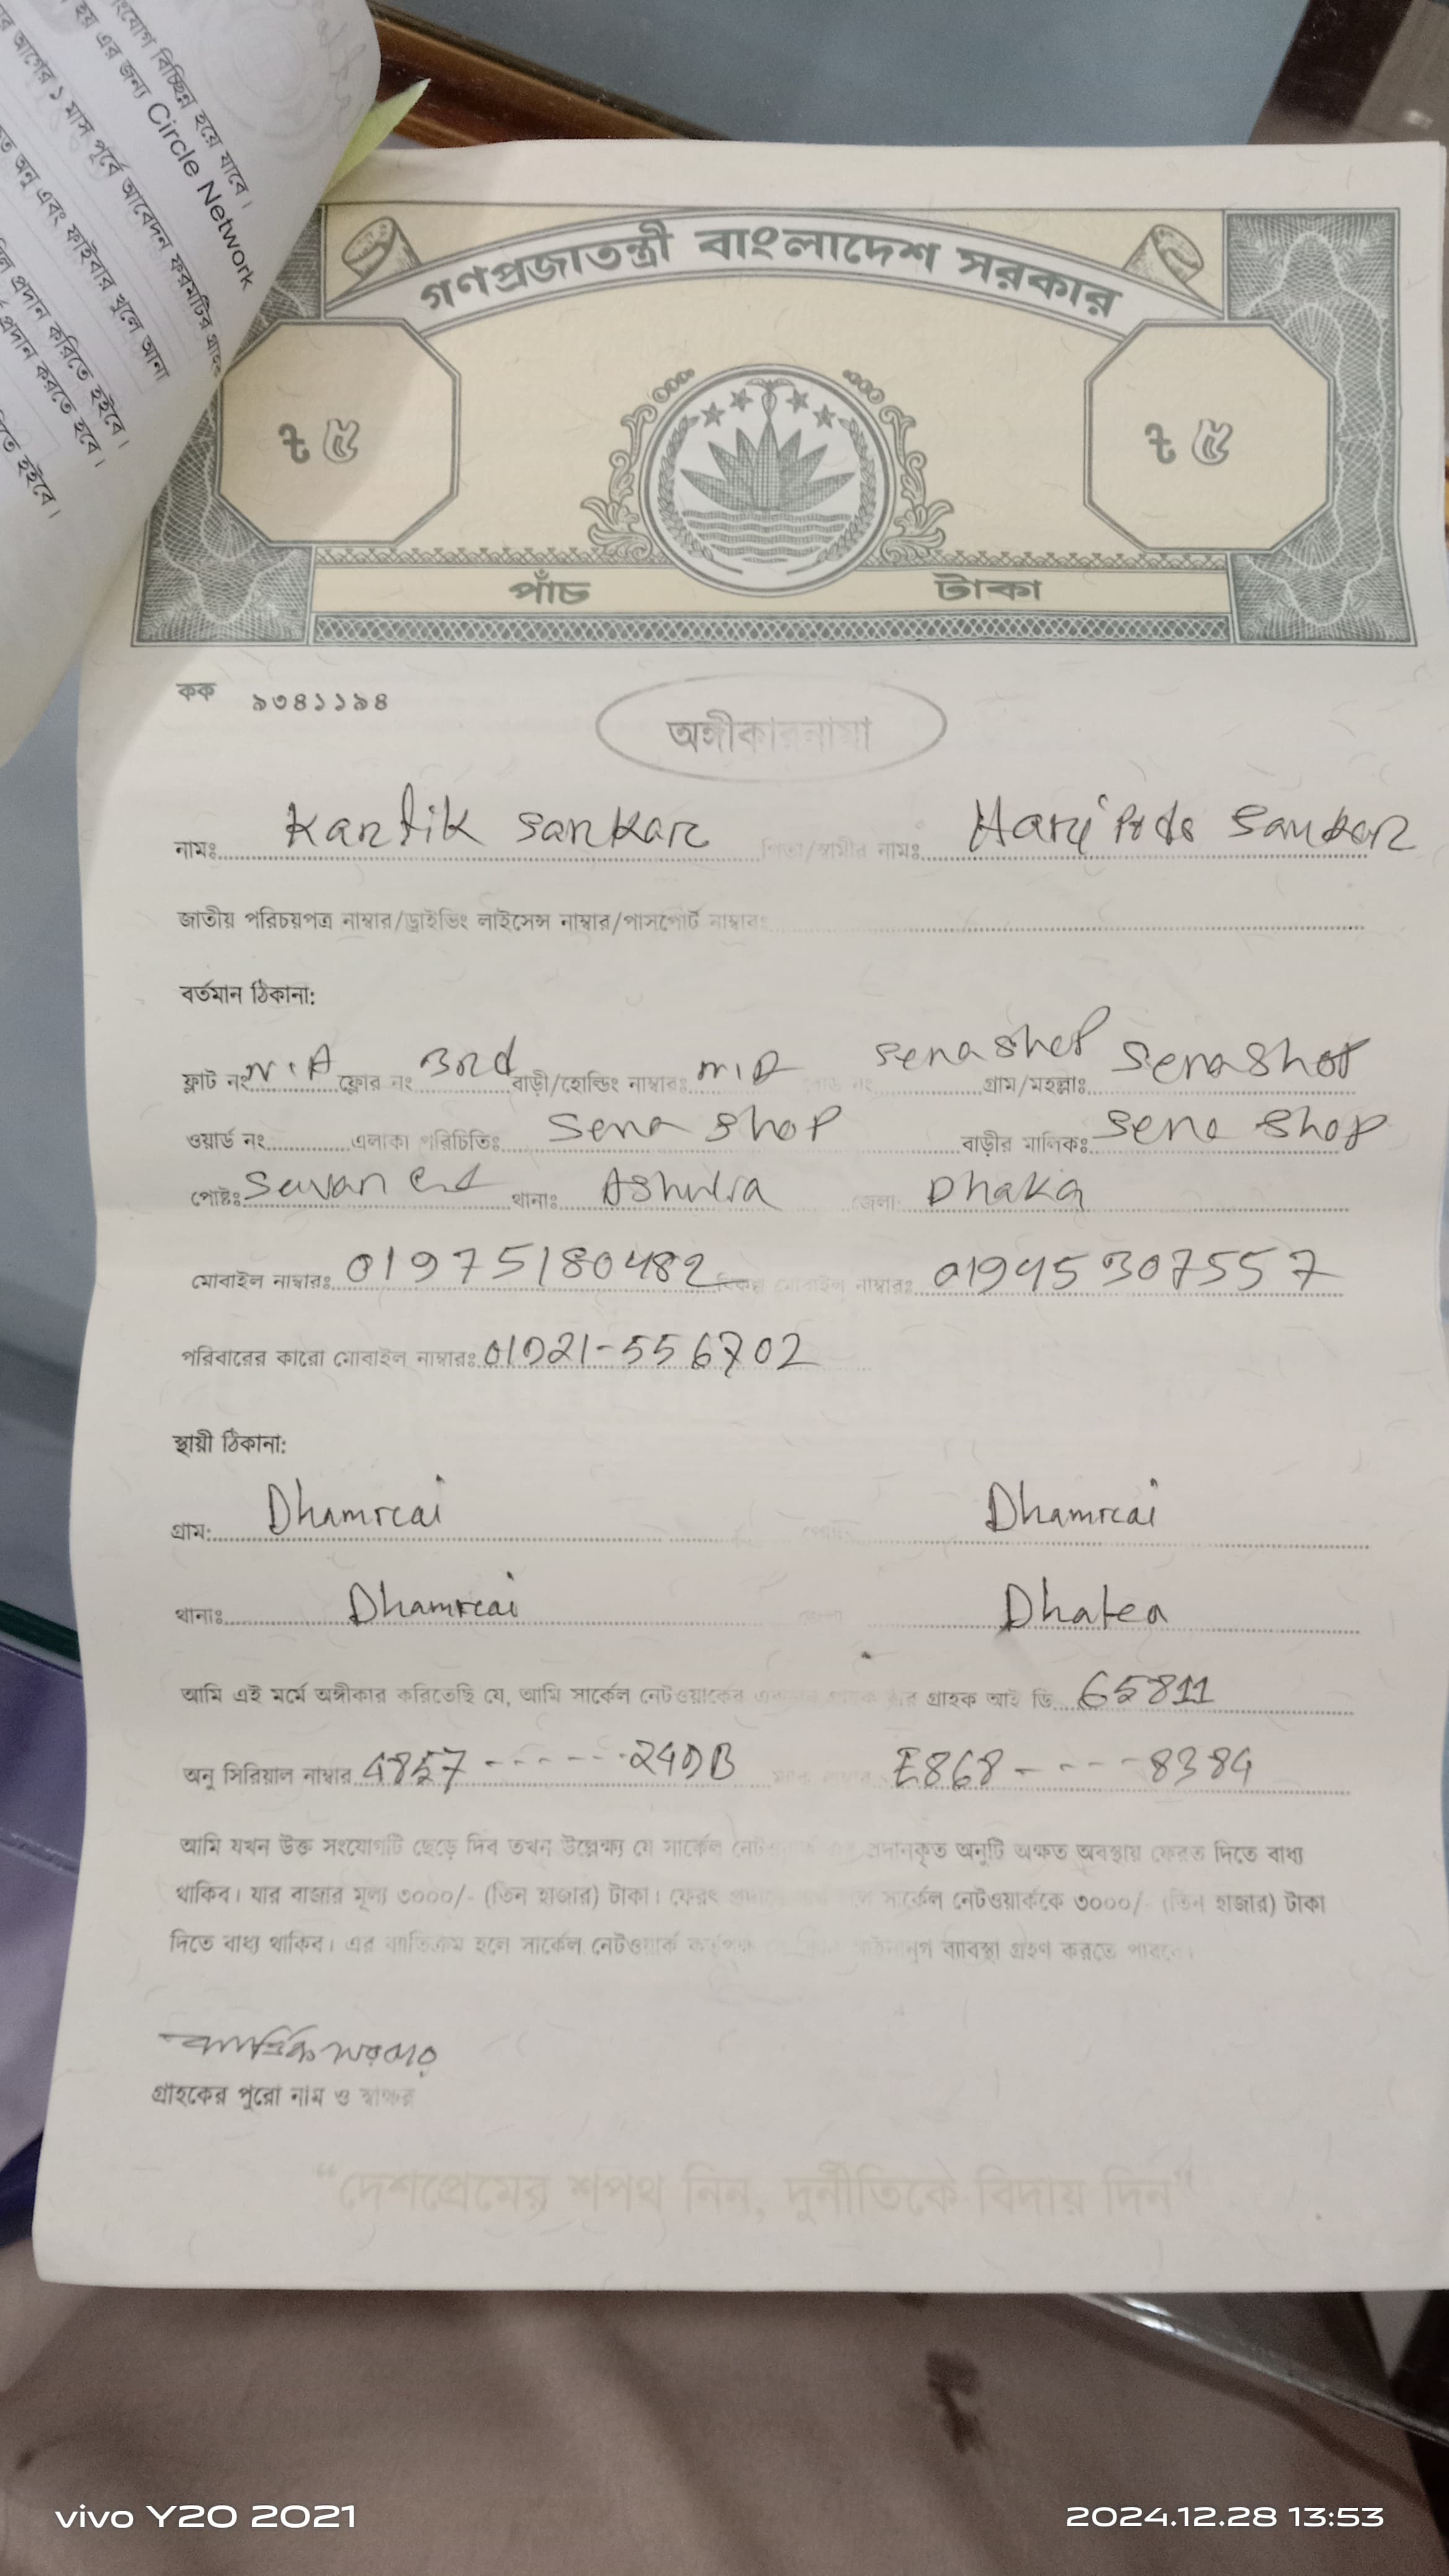 সংযোগ বিচ্ছিন্ন হয়ে যাবে।
হয় এর জন্য Circle Network
আগের ১ মাস পূর্বে আবেদন ফরমটির
অনু এবং ফাইবার খুলে আনা
প্রদান করিতে হইবে।
প্রদান করতে হবে।
হইবে।
গণপ্রজাতন্ত্রী বাংলাদেশ সরকার
৳ ৫ ৳ ৫
পাঁচ টাকা
কক ৯৩৪১১৯৪
অঙ্গীকারনামা
নামঃ Kartik Sarkar পিতা/স্বামীর নামঃ Sarkar
জাতীয় পরিচয়পত্র নাম্বার/ড্রাইভিং লাইসেন্স নাম্বার/পাসপোর্ট নাম্বারঃ
বর্তমান ঠিকানা:
ফ্লাট নং N.A ফ্লোর নং 3rd বাড়ী/হোল্ডিং নাম্বারঃ Sena Shop গ্রাম/মহল্লাঃ Sena Shop
ওয়ার্ড নং এলাকা পরিচিতিঃ Sena Shop বাড়ীর মালিকঃ Sena Shop
পোষ্টঃ থানাঃ Ashulia জেলা: Dhaka
মোবাইল নাম্বারঃ 01975180482 বিকল্প মোবাইল নাম্বারঃ 01945307557
পরিবারের কারো মোবাইল নাম্বারঃ
স্থায়ী ঠিকানা:
গ্রাম: Dhamrai Dhamrai
থানাঃ Dhamrai Dhaka
আমি এই মর্মে অঙ্গীকার করিতেছি যে, আমি সার্কেল নেটওয়ার্কের গ্রাহক আই ডি 65811
অনু সিরিয়াল নাম্বার 4857 ------ 249B E868 ---- 8384
আমি যখন উক্ত সংযোগটি ছেড়ে দিব তখন উল্লেক্ষ্য যে সার্কেল প্রদানকৃত অনুটি অক্ষত অবস্থায় ফেরত দিতে বাধ্য
থাকিব। যার বাজার মূল্য ৩০০০/- (তিন হাজার) টাকা। ফেরৎ সার্কেল নেটওয়ার্ককে ৩০০০/- (তিন হাজার) টাকা
দিতে বাধ্য থাকিব। এর ব্যাতিক্রম হলে সার্কেল নেটওয়ার্ক ব্যাবস্থা গ্রহণ করতে পারবে।
কার্ত্তিক সরকার
গ্রাহকের পুরো নাম ও স্বাক্ষর
“দেশপ্রেমের শপথ নিন, দুর্নীতিকে বিদায় দিন”
vivo Y20 2021 2024.12.28 13:53